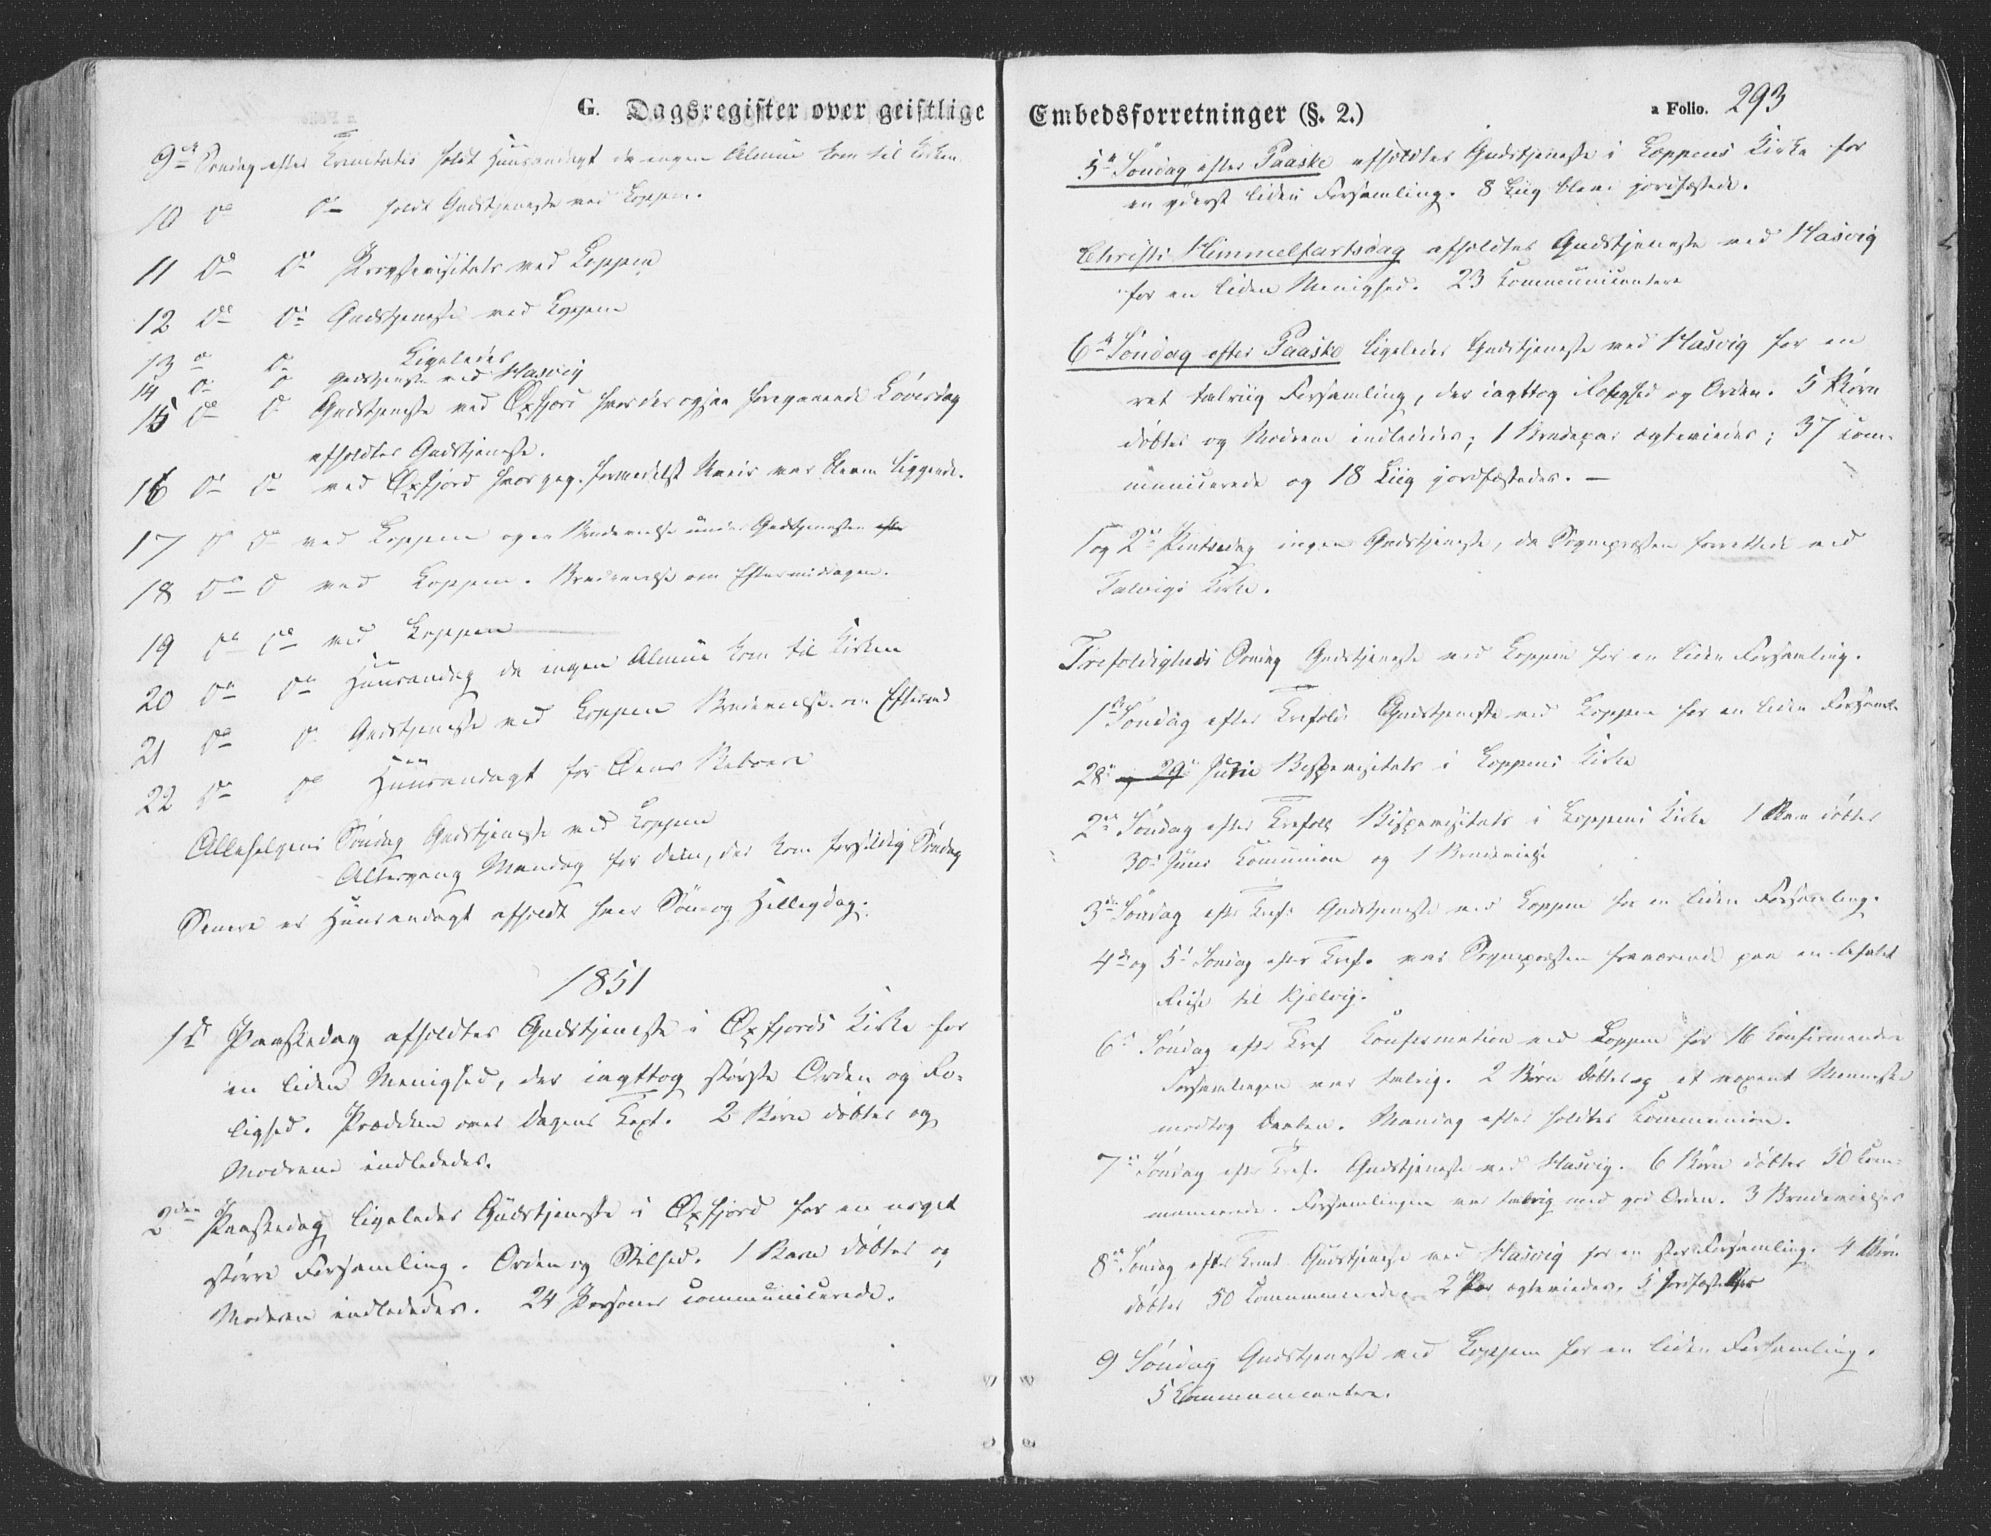 G. Dagsregister over geistlige
9de Søndag efter Trinitatis holdt Huusandagt da ingen Almue kom til Kirken.
10 do do holdt Gudstjeneste ved Loppen.
11 do do Provstevisitats ved Loppen
12 do do Gudstjeneste ved Loppen
13 do do Ligeledes
14 do do Gudstjeneste ved Hasvig
15 do do Gudstjeneste ved Øxfjord hvor der ogsaa foregaaende Løverdag
afholdtes Gudstjeneste.
16 do do ved Øxfjord hvor jeg formedelst Uveir var bleven liggende.
17 do do ved Loppen og en Brudevielse under Gudstjenesten
18 do do ved Loppen. Brudevielse om Eftermiddagen.
19 do do ved Loppen
20 do do Huusandag da ingen Almue kom til Kirken
21 do do Gudstjeneste ved Loppen Brudevielse om Eftermd
22 do do Huusandagt for Øens Beboere
Allehelgens Søndag Gudstjeneste ved Loppen
Altergang Mandag for dem, der kom forsildig Søndag
Senere er Huusandagt afholdt hver Søn og Helligdag.
1851
1ste Paaskedag afholdtes Gudstjeneste i Øxfjords Kirke for
en liden Menighed, der iagttog største Orden og Ro-
lighed. Prædiken over Dagens Text. 2 Børn døbtes og
Mødrene indlededes.
2den Paaskedag ligeledes Gudstjeneste i Øxfjord for en noget
større Forsamling. Orden og Stilhed. 1 Barn døbtes og
Moderen indlededes. 24 Personer communicerede.
Embedsforretninger (§. 2.)
a Folio. 293
5te Søndag efter Paaske afholdtes Gudstjeneste i Loppens Kirke for
en yderst liden Forsamling. 8 Liig bleve jordfæstede.
Christi Himmelfartsdag afholdtes Gudstjeneste ved Hasvig
for en liden Menighed. 23 Communicantere
6te Søndag efter Paaske ligeledes Gudstjeneste ved Hasvig for en
ret talriig Forsamling, der iagttog Rolighed og Orden. 5 Børn
døbtes og Mødrene indlededes; 1 Brudepar ægteviedes; 37 com-
municerede og 18 Liig jordfæstedes. —
1 og 2den Pintsedag ingen Gudstjeneste, da Sognepræsten forrettede ved
Talvigs Kirke.
Trefoldigheds Søndag Gudstjeneste ved Loppen for en liden Forsamling.
1ste Søndag efter Trefold: Gudstjeneste ved Loppen for en liden Forsaml
28de og 29de Juni Bispevisitats i Loppens Kirke
2den Søndag efter Trefold Bispevisitats i Loppens Kirke 1 Barn døbtes
30te Juni Communion og 1 Brudevielse
3die Søndag efter Tref: Gudstjeneste ved Loppen for en liden Forsamling.
4de og 5te Søndag efter Tref. var Sognepræsten fraværende paa en befalet
Reise til Kjelvig.
6te Søndag efter Tref Confirmation ved Loppen for 16 Confirmander
Forsamlingen var talrig. 2 Børn døbtes og et voxent Menneske
modtog Daaben. Mandag efter holdtes Communion.
7de Søndag efter Tref. Gudstjeneste ved Hasvig. 6 Børn døbtes 50 Com-
municerede. Forsamlingen var talrig med god Orden. 3 Brudevielser
8de Søndag efter Gudstjeneste ved Hasvig for en stor Forsamling. 4 Børn
døbtes 50 Communicerede. 2 Par ægteviedes. 5
9 Søndag Gudstjeneste ved Loppen for en liden Forsamling.
5 Communicantere.